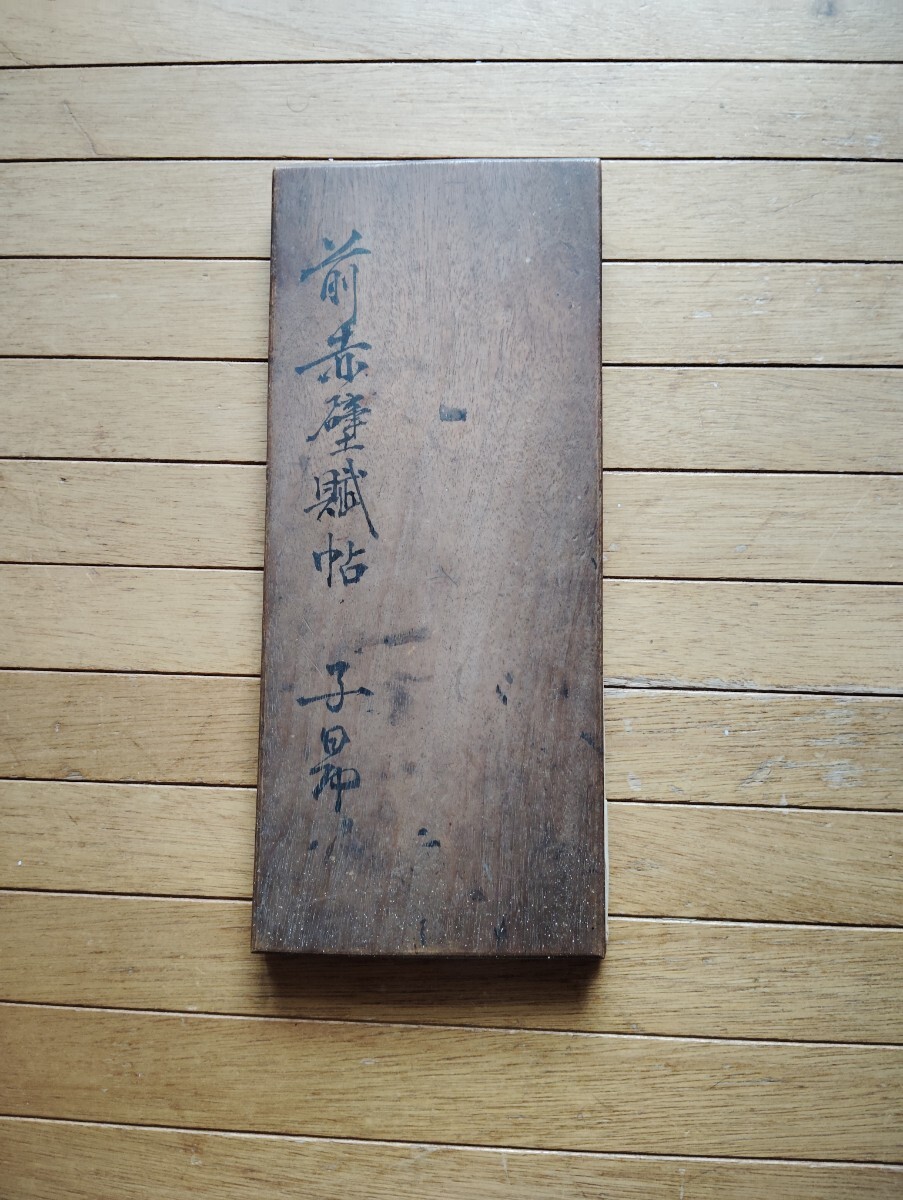 前赤壁賦帖 子昴